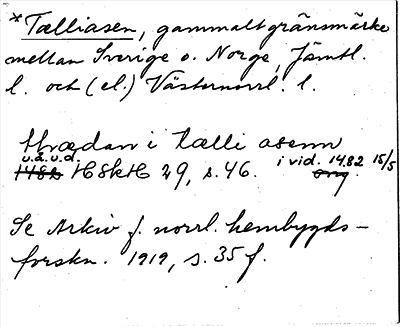 *Tælliasen, gammalt gränsmärke
mellan Sverige o. Norge, Jämtl.
l. och (el.) Västernorrl. l.
thædan i tælli asenn
u.å.u.d. i vid. 1482 15/5
1482 HSkH 29, s. 46. orig.
Se Arkiv f. norrl. hembygds-
forskn. 1919, s. 35 f.